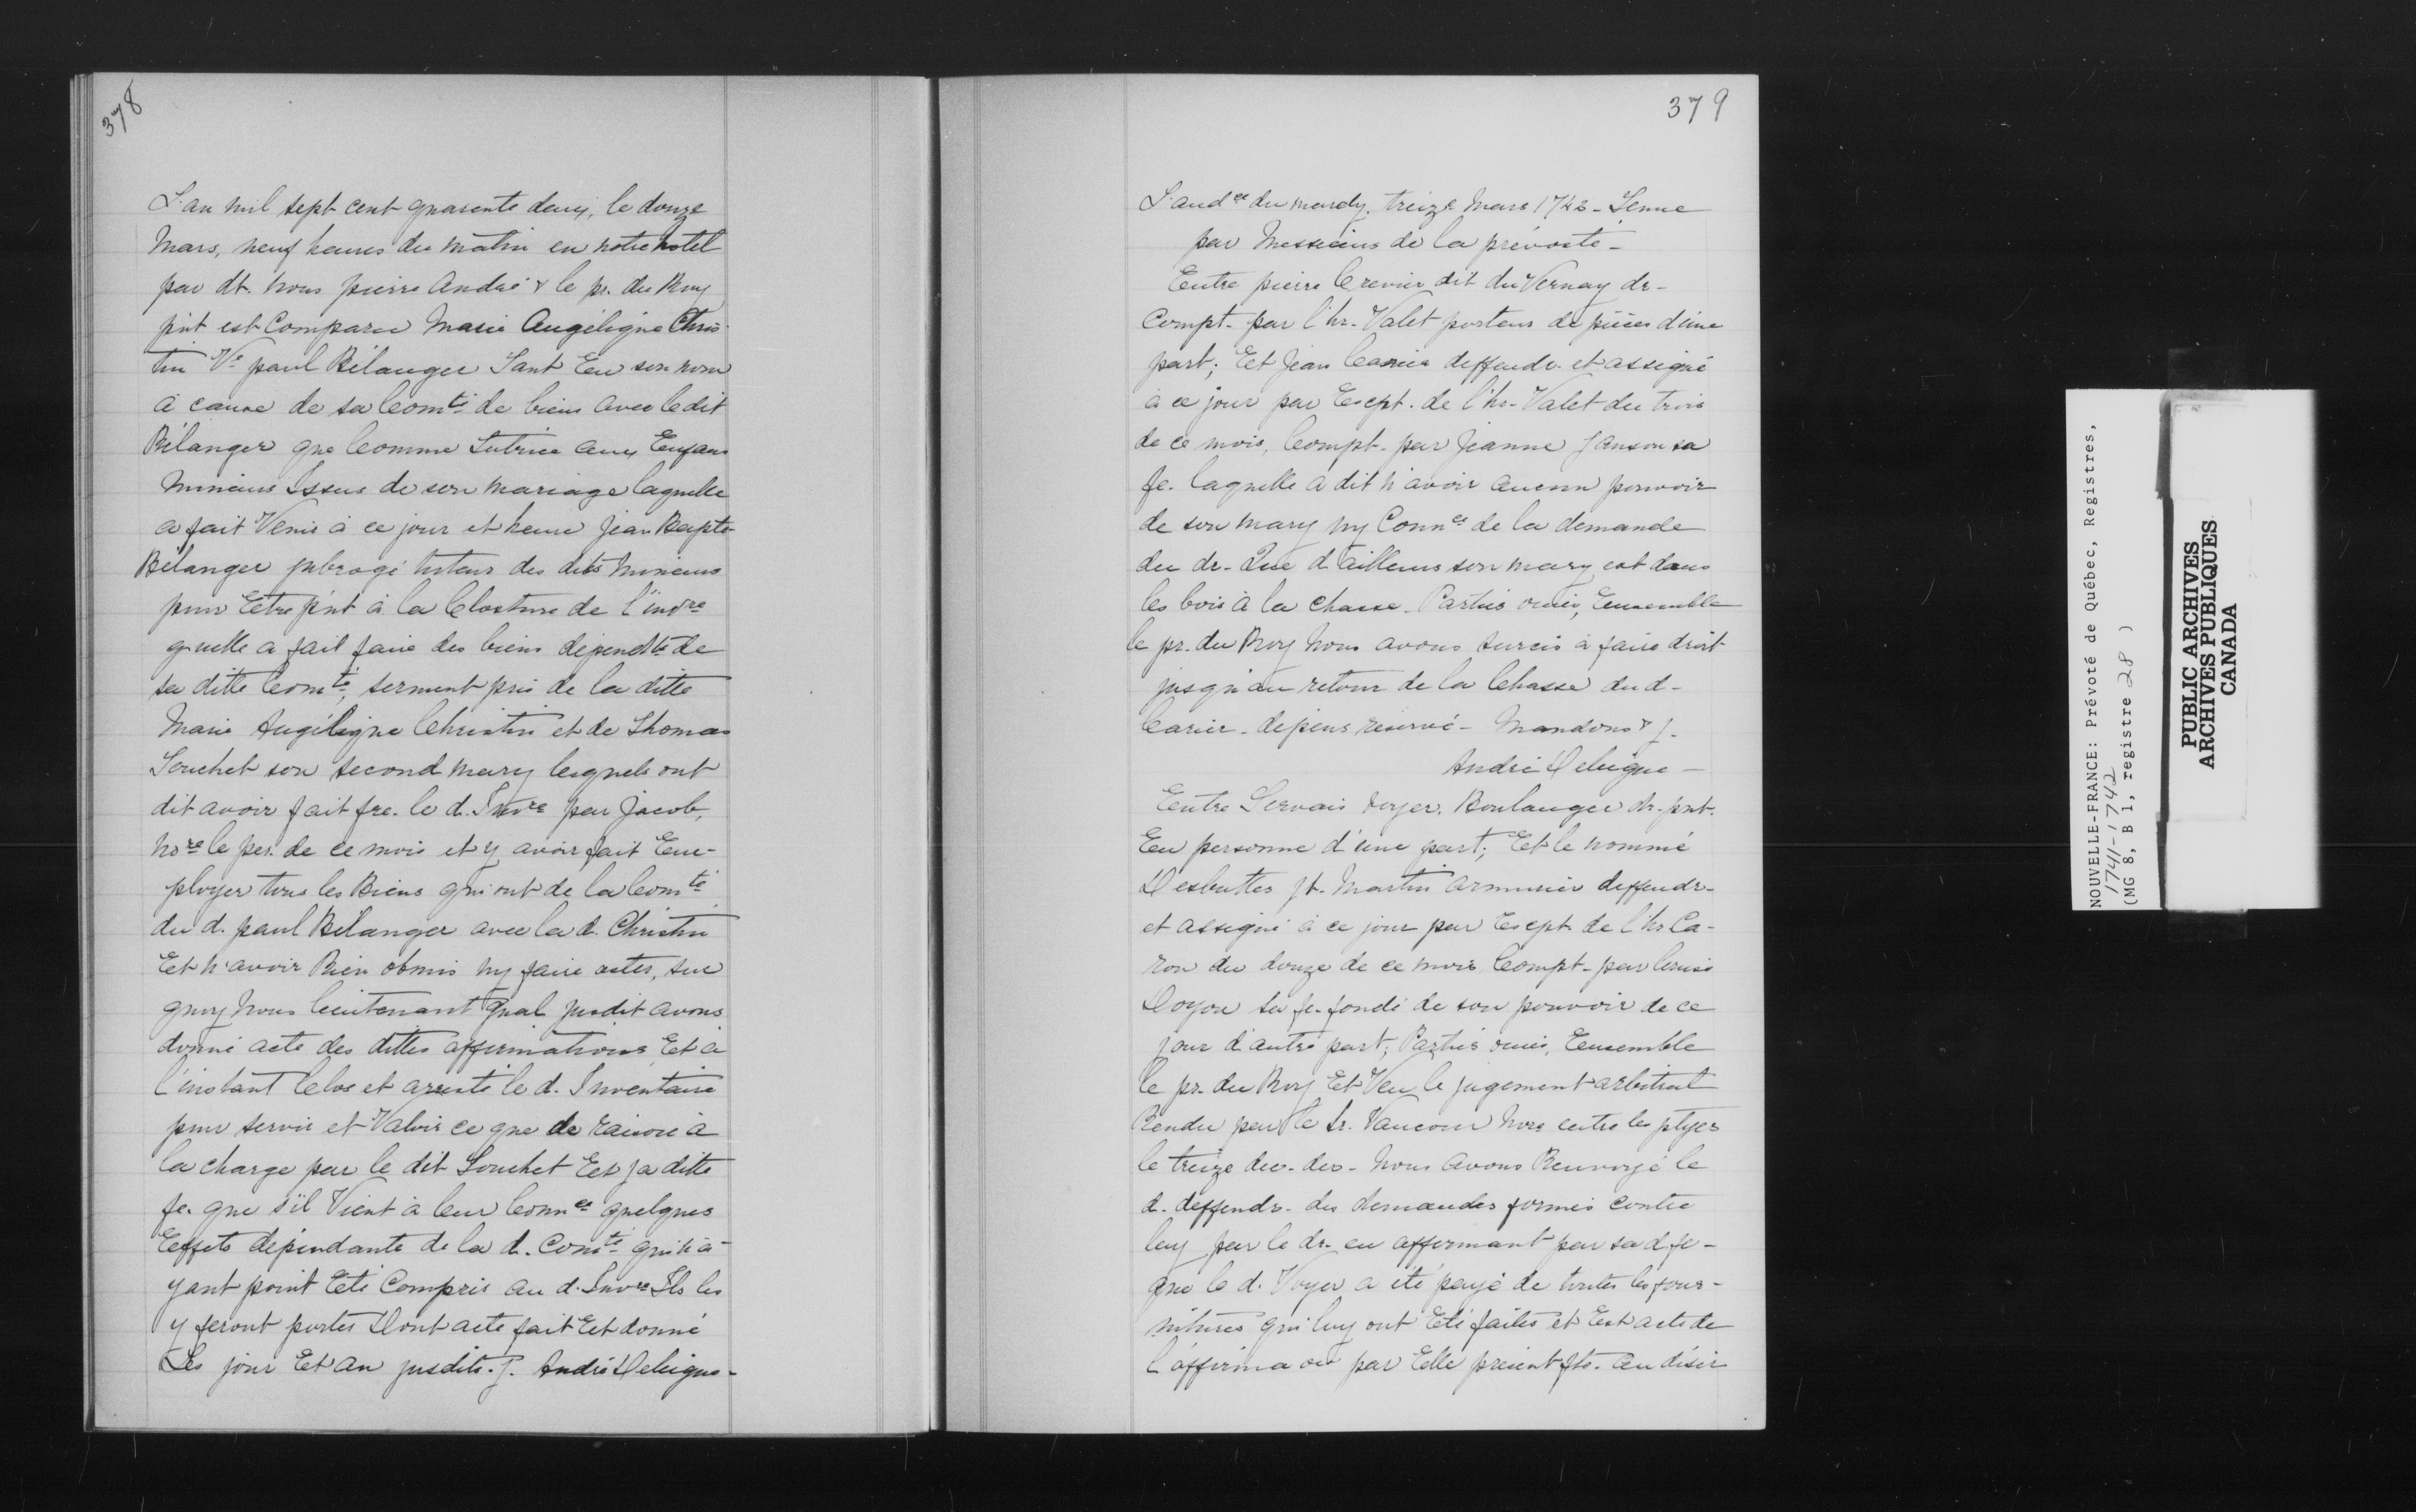 378
L'an mil sept cent quarente deux, le douze
Mars, neuf heures du matin en notre hotel
par dt. nous pierre André & le pr. du Roy
p'nt est Comparue Marie Angélique Chris-
tin Ve. paul Bélanger Tant En son nom
à cause de sa Comté. de biens avec ledit
Bélanger que Comme Tutrice aux Enfans
Mineurs Issus de son mariage laquelle
a fait Venir à ce jour et heure Jean Bapte
Bélanger subrogé tuteur des dits Mineurs
pour Etre p'nt à la Closture de l'invre
quelle a fait faire des biens dépendts de
sa ditte Comté, serment pris de la ditte
Marie Angélique Christin et de Thomas
Touchet son second mary lesquels ont
dit avoir fait fre. le d. Invre par Jacob,
nore le per. de ce mois et y avoir fait Em-
ployer tous les Biens qui ont de la Comté
du d. paul Bélanger avec la d. Christin
Et n'avoir Rien obmis ny faire acter, sur
quoy Nous lieutenant Gnal susdit avons
donné acte des dittes affirmations Et à
l'instant Clos et arresté le d. Inventaire
pour servir et Valoir ce que de raison à
la charge par le dit Touchet Et sa ditte
fe. que s'il Vient à leur Connce quelques
Effets dépendants de la d. Comté qui n'a-
yant point Eté Compris au d. Invre Ils les
y feront porter Dont acte fait Et donné
Les jour Et an susdits. J. André Deleigne-
379
L'audce du mardy, treize Mars 1742 - Tenue
par Messieurs de la prévosté -
Entre pierre Crevier dit du Vernay dr-
Compt. par l'hr. Valet porteur de pièces d'une
part; Et Jean Carrier deffendr. et assigné
à ce jour par Exept. de l'hr. Valet du trois
de ce mois, Compt. par Jeanne Janson sa
fe. laquelle a dit n'avoir aucun pouvoir
de son mary ny Connce de la demande
du dr. Que d'ailleurs son mary est dans
les bois à la chasse. Parties ouies, Ensemble
le pr. du Roy Nous avons surcis à faire droit
jusqu'au retour de la Chasse dud -
Carier - dépens réservé - Mandons & J.
André Deleigne -
Entre Gervais voyer, Boulanger dr. p'nt.
En personne d'une part; Et le nommé
Desbuttes Jt. Martin armurier deffendr-
et assigné à ce jour par Exept de l'hr Ca-
ron du douze de ce mois, Compt - par
Doyon sa fe. fondé de son pouvoir de ce
jour d'autre part; Parties ouies, Ensemble
le pr. du Roy Et Veu le jugement arbitral
Rendu par le Sr. Vaucour nore entre les ptyes
le treize dec. der - Nous avons Renvoyé le
d. deffendr. des demandes formés contre
luy par le dr. en affirmant par sa d. fe -
que le d. Voyer a été payé de toutes les four-
nitures qui luy ont Eté faites et Est acte de
l'affirmaon par Elle présentt fte. au désir
NOUVELLE-FRANCE: Prévoté de Québec, Registres,
1741-1742
(MG 8, B 1, registre 28 )
PUBLIC ARCHIVES
ARCHIVES PUBLIQUES
CANADA